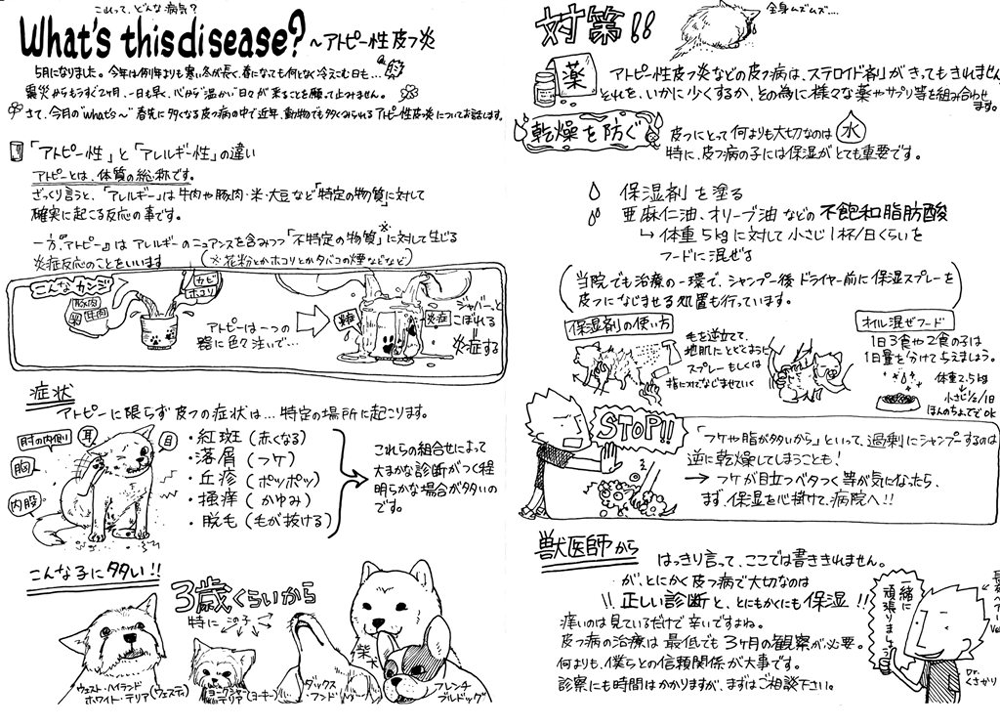 これって、どんな病気？
What's this disease? ～アトピー性皮フ炎
5月になりました。今年は例年よりも寒い冬が長く、春になっても何となく冷えこむ日も…
震災からもうすぐ2ヶ月、一日も早く、心から温かい日々が来ることを願って止みません。
さて、今月の"what's～"春先に多くなる皮フの病の中で近年、動物でも多くみられるアトピー性皮フ炎についてお話します。
「アトピー性」と「アレルギー性」の違い
アトピーとは、体質の総称です。
ざっくり言うと、「アレルギー」は牛肉や豚肉・米・大豆など「特定の物質」に対して
確実に起こる反応の事です。
一方、『アトピー』はアレルギーのニュアンスを含みつつ「不特定の物質※」に対して生じる
炎症反応のことをいいます（※花粉とかホコリとかタバコの煙などなど）
こんなカンジ
豚肉
米
牛肉
カビ
ホコリ
アトピーは一つの
器に色々注いで…
炎症
炎症
ジャバーっと
こぼれる
＝
炎症する
症状
アトピーに限らず皮フの症状は…特定の場所に起こります。
肘の内側
耳
目
胸
内股
・紅斑（赤くなる）
・落屑（フケ）
・丘疹（ポツポツ）
・掻痒（かゆみ）
・脱毛（毛が抜ける）
これらの組合せによって
大まかな診断がつく程
明らかな場合が多いの
です。
こんな子に多い!!
3歳くらいから
特にこの子
ウェスト・ハイランド
ホワイト・テリア（ウェスティ）
ヨークシャー
テリア（ヨーキー）
ダックス
フンド
柴犬
フレンチ
ブルドッグ
対策!!
全身ムズムズ…
薬
アトピー性皮フ炎などの皮フ病は、ステロイド剤がきってもきれません
それを、いかに少くするか、その為に様々な薬やサプリ等を組み合わせ
ます。
乾燥を防ぐ
皮フにとって何よりも大切なのは水
特に、皮フ病の子には保湿がとても重要です。
保湿剤を塗る
亜麻仁油、オリーブ油などの不飽和脂肪酸
↳体重5kgに対して小さじ1杯/日くらいを
フードに混ぜる
（当院でも治療の一環で、シャンプー後ドライヤー前に保湿スプレーを
皮フになじませる処置も行っています。）
保湿剤の使い方
毛を逆立てて、
地肌にとどくように
スプレーもしくは
指につけてなじませていく
オイル混ぜフード
1日3食や2食の子は
1日量を分けて与えましょう。
体重2.5kg
↓
小さじ1/2/1日
ほんのちょっとでOK
STOP!!
「フケや脂が多いから」といって、過剰にシャンプーするのは
逆に乾燥してしまうことも！
→フケが目立つベタつく等が気になったら、
まず、保湿を心掛けて、病院へ!!
獣医師から
はっきり言って、ここでは書ききれません。
が、とにかく皮フ病で大切なのは
!!正しい診断と、とにもかくにも保湿!!
痒いのは見ているだけで辛いですよね。
皮フ病の治療は最低でも3ヶ月の観察が必要。
何よりも、僕らとの信頼関係が大事です。
診察にも時間はかかりますが、まずはご相談下さい。
一緒に
頑張りましょう
Dr.
くさかり